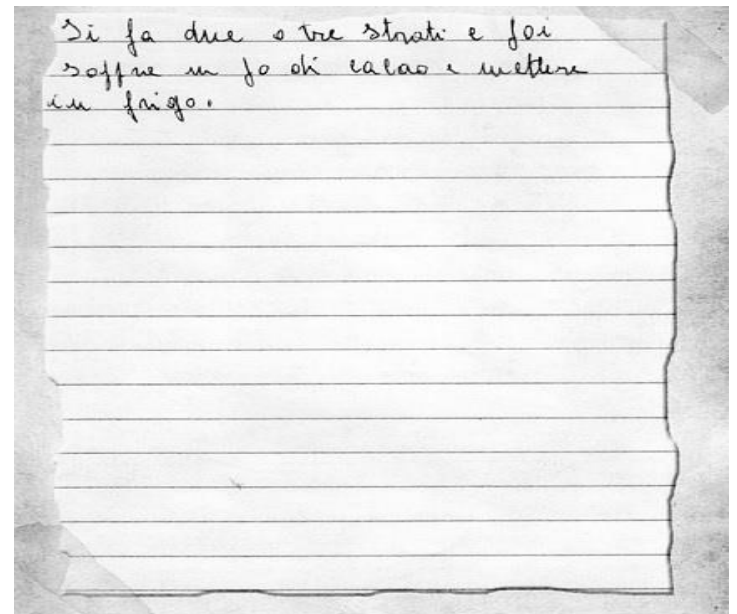 Si fa due o tre strati e poi
soppre un po di cacao e mettere
in frigo.